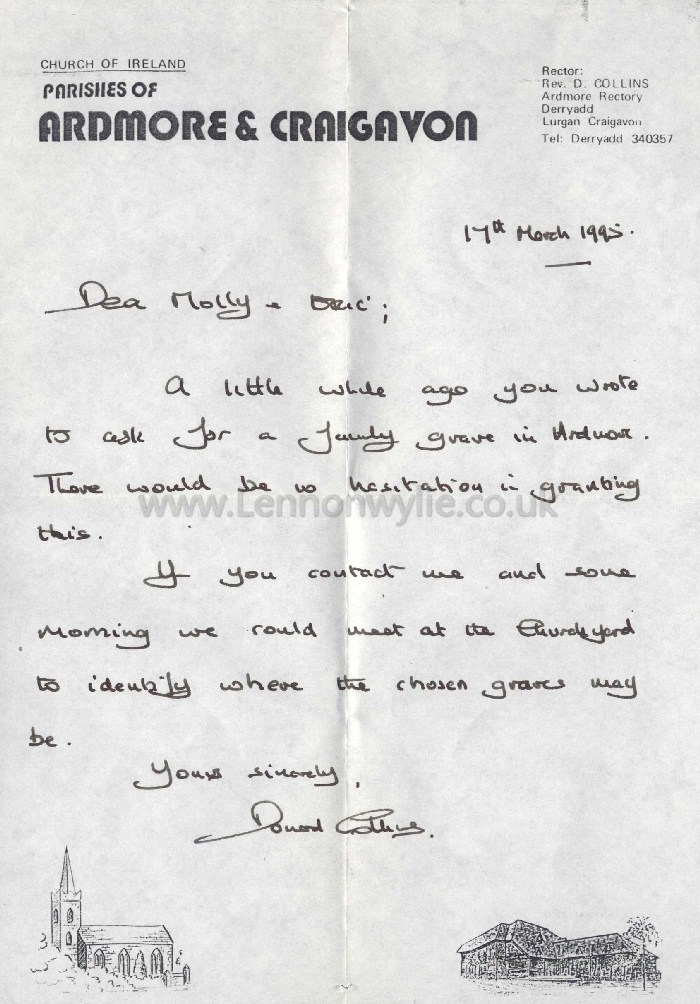 CHURCH OF IRELAND
PARISHES OF
ARDMORE & CRAIGAVON
Rector:
Rev. D. COLLINS
Ardmore Rectory
Derryadd
Lurgan Craigavon
Tel: Derryadd 340357
17th March 1995.
Dear Molly & Eric;
A little while ago you wrote
to ask for a family grave in Ardmore.
There would be no hesitation in granting
this.
www.Lennonwylie.co.uk
If you contact me and some
morning we could meet at the Churchyard
to identify where the chosen graves may
be.
Yours sincerely,
Collins.